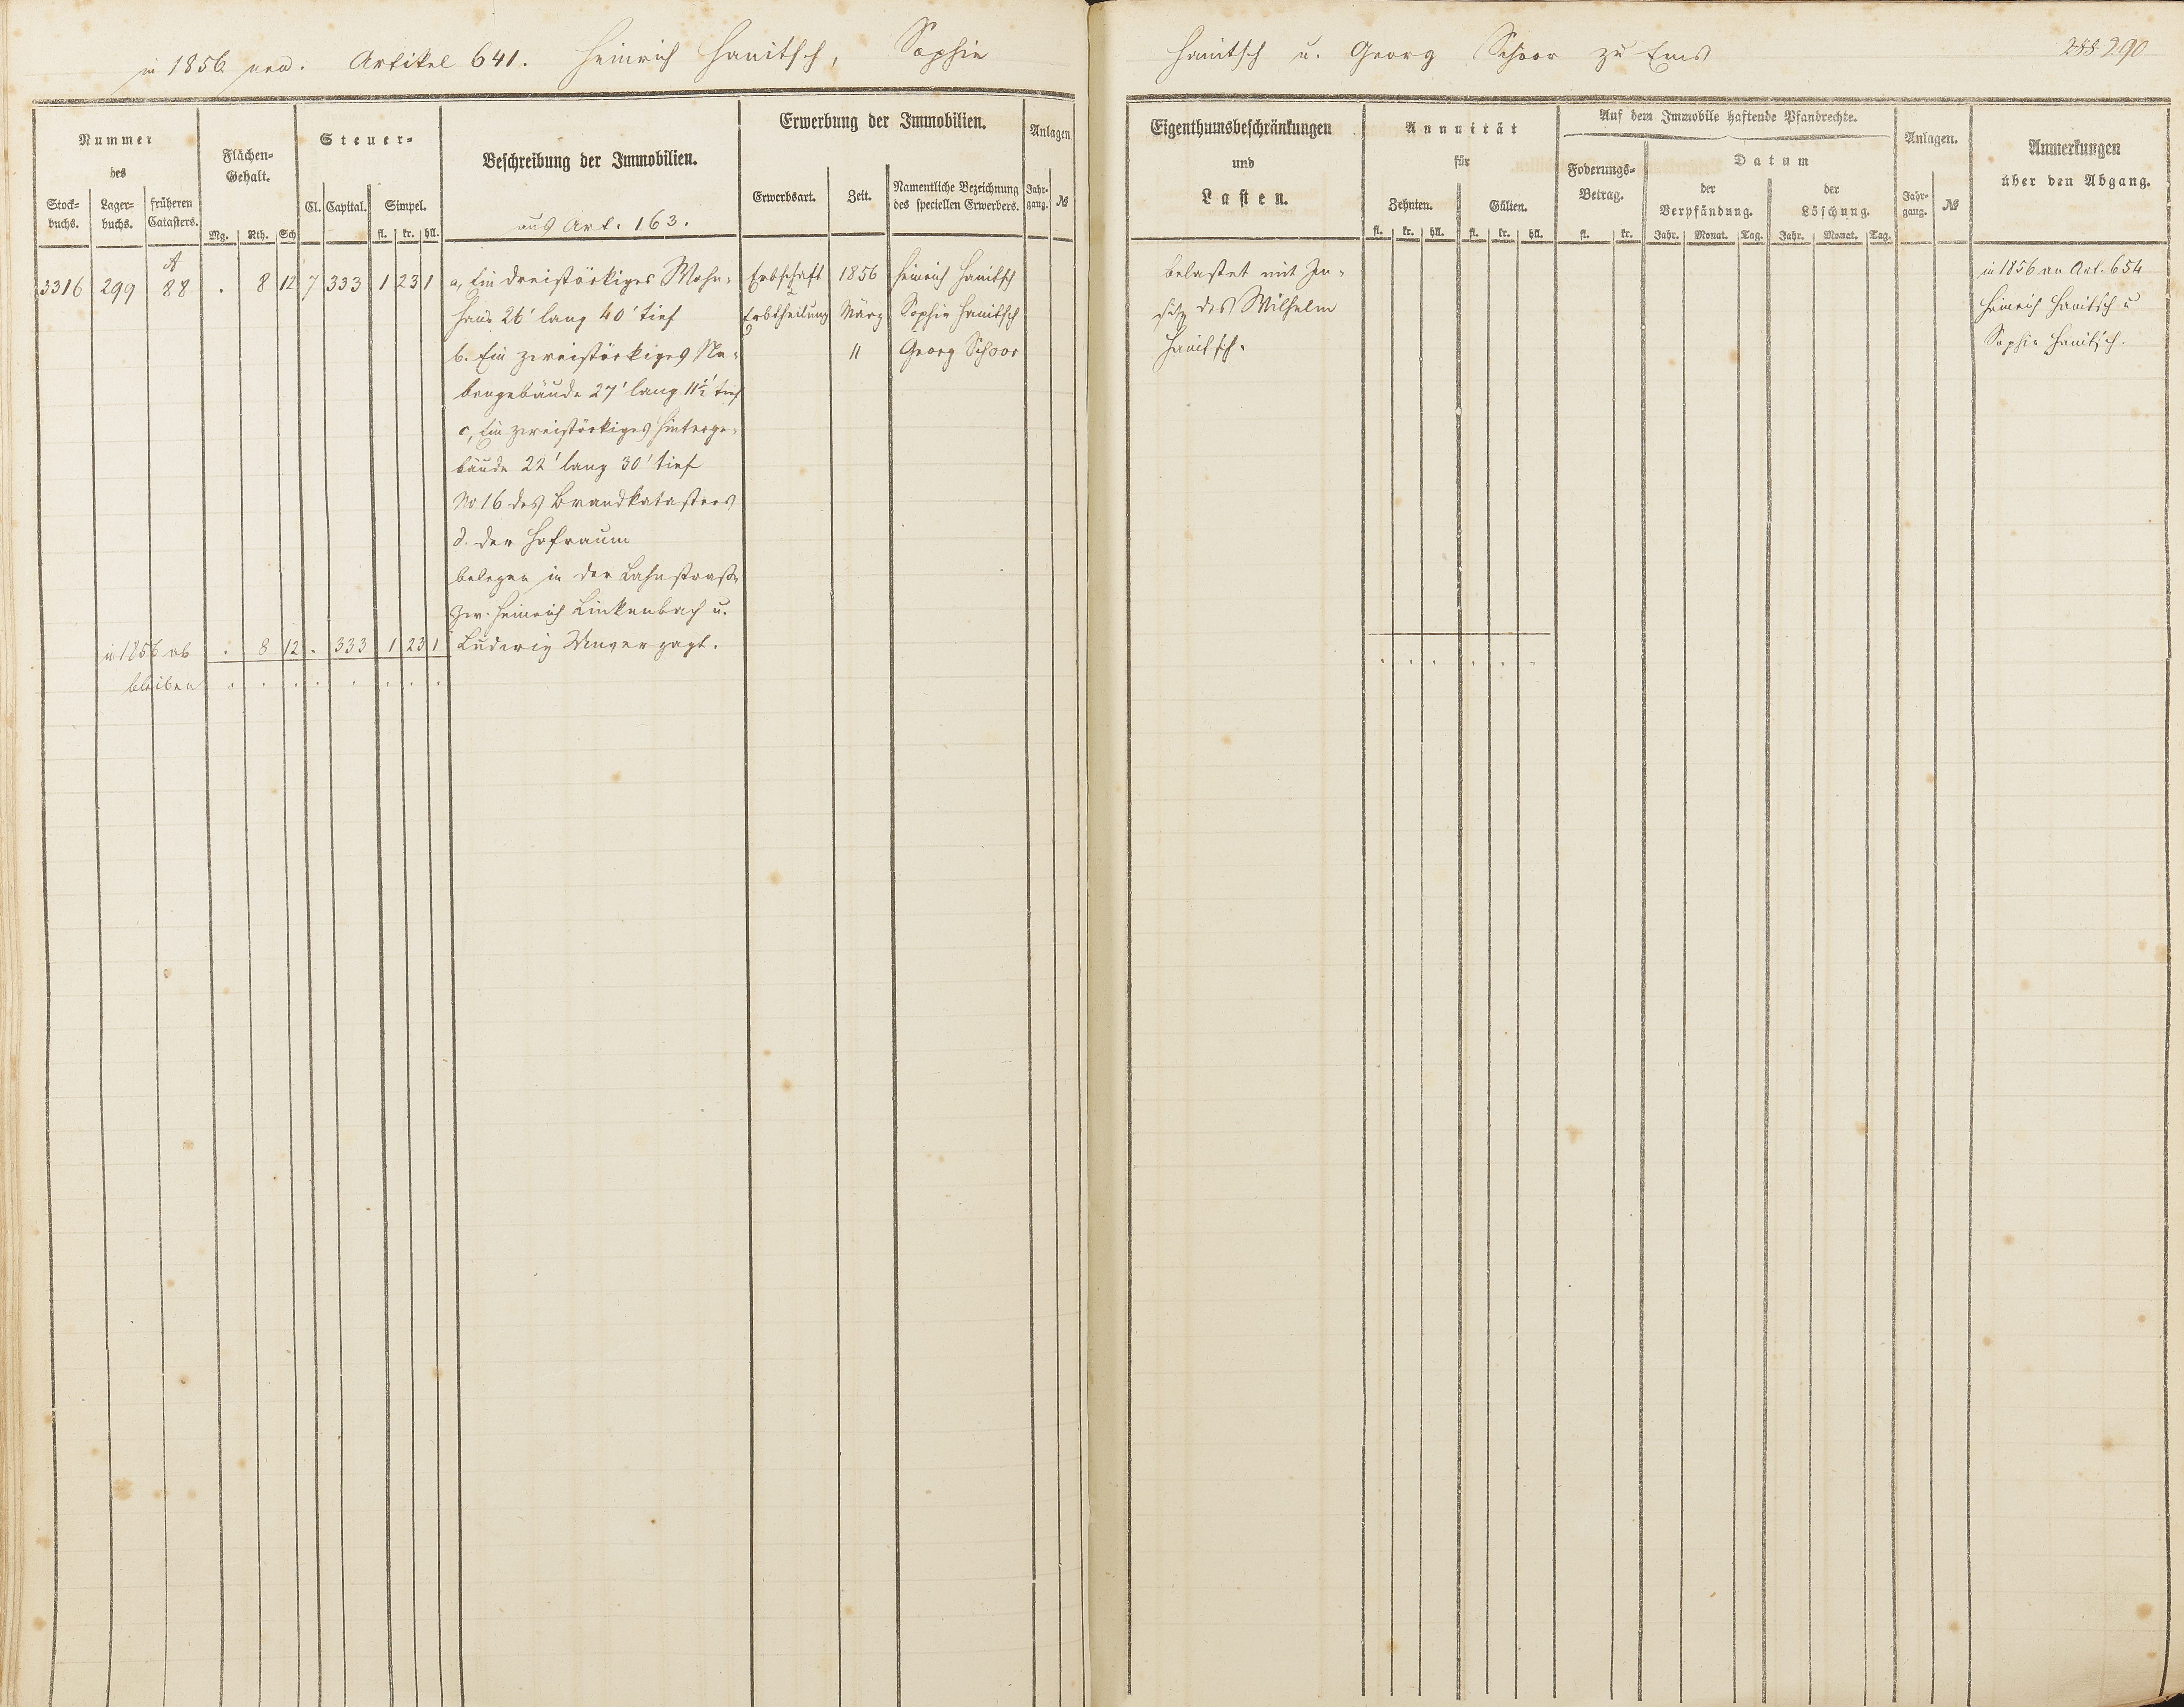 in 1856 neu. Artikel 641. Heinrich Hanitsch, Sophie
Hanitsch u. Georg Schoor zu Ems
288 290
Nummer
des
Stock-
buchs.
Lager-
buchs.
früheren
Catasters.
Flächen-
Gehalt.
Mg. Rth. Sch
Steuer-
Cl. Capital. Simpel.
fl. kr. hll.
Beschreibung der Immobilien.
aus Art. 163.
Erwerbung der Immobilien.
Erwerbsart. Zeit.
Namentliche Bezeichnung
des speciellen Erwerbers.
Anlagen
Jahr-
gang. №
Eigenthumsbeschränkungen
und
Lasten.
Annuität
für
Zehnten. Gülten.
fl. kr. hll. fl. kr. hll.
Auf dem Immobile haftende Pfandrechte.
Foderungs-
Betrag.
fl. kr.
Datum
der
Verpfändung.
der
Löschung.
Jahr. Monat. Tag. Jahr. Monat. Tag.
Anlagen.
Jahr-
gang. №
Anmerkungen
über den Abgang.
A
3316 299 88 . 8 12 7 333 1 23 1
a, Ein dreistöckiges Wohn-
haus 26' lang 40' tief
b. Ein zweistöckiges Ne-
bengebäude 27' lang 11½' tief
c, Ein zweistöckiges Hinterge-
bäude 22' lang 30' tief
No 16 des Brandkatasters
d. der Hofraum
belegen in der Lahnstraße
zw. Heinrich Linkenbach u.
Ludwig Unverzagt.
Erbschaft 1856 Heinrich Hanitsch
Erbtheilung März Sophie Hanitsch
11 Georg Schoor
belastet mit In-
sitz des Wilhelm
Hanitsch.
in 1856 an Art. 654
Heinrich Hanitsch u
Sophie Hanitsch.
in 1856 ab . 8 12 . 333 1 23 1
bleiben . . . . . . . .
. . . . . .